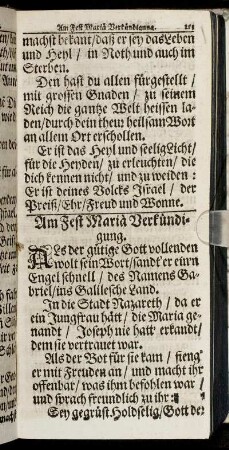 Am Fest Mariä Verkündigung.
machst bekant/ daß er sey das Leben
und Heyl / in Noth und auch im
Sterben.
Den hast du allen fürgestellt /
mit grossen Gnaden / zu seinem
Reich die gantze Welt heissen la-
den/ durch dein theur heilsam Wort
an allem Ort erschollen.
Er ist das Heyl und seelig Licht/
für die Heyden/ zu erleuchten/ die
dich kennen nicht/ und zu weiden :
Er ist deines Volcks Israel / der
Preiß/ Ehr/ Freud und Wonne.
Am Fest Mariä Verkündi-
gung.
ALs der gütige Gott vollenden
wolt sein Wort/ sandt er eim
Engel schnell / des Namens Ga-
briel/ ins Galilesche Land.
In die Stadt Nazareth / da er
ein Jungfrau hätt/ die Maria ge-
nandt / Joseph nie hatt' erkandt/
dem sie vertrauet war.
Als der Bot für sie kam / fieng
er mit Freuden an/ und macht ihr
offenbar/ was ihm befohlen war /
und sprach freundlich zu ihr :
Sey gegrüst Holdselig/ Gott der